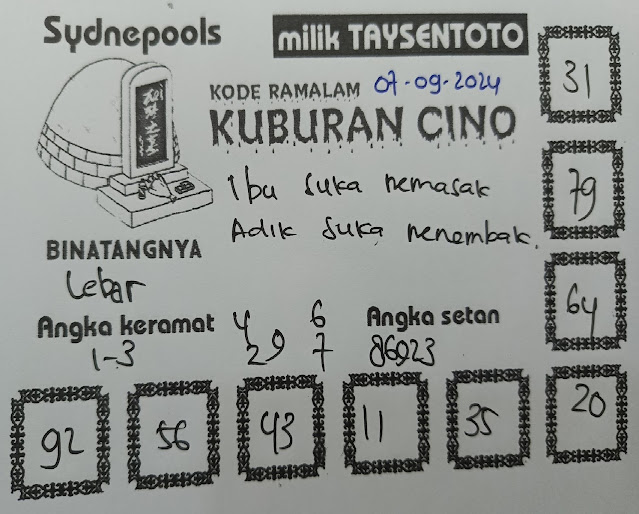 Sydnepools
milik TAYSENTOTO
KODE RAMALAM 07-09-2024
KUBURAN CINO
Ibu suka memasak
Adik suka menembak.
BINATANGNYA
Lebar
Angka keramat
1-3
4 6
29 7
Angka setan
86923
31
79
64
20
92
56
43
11
35